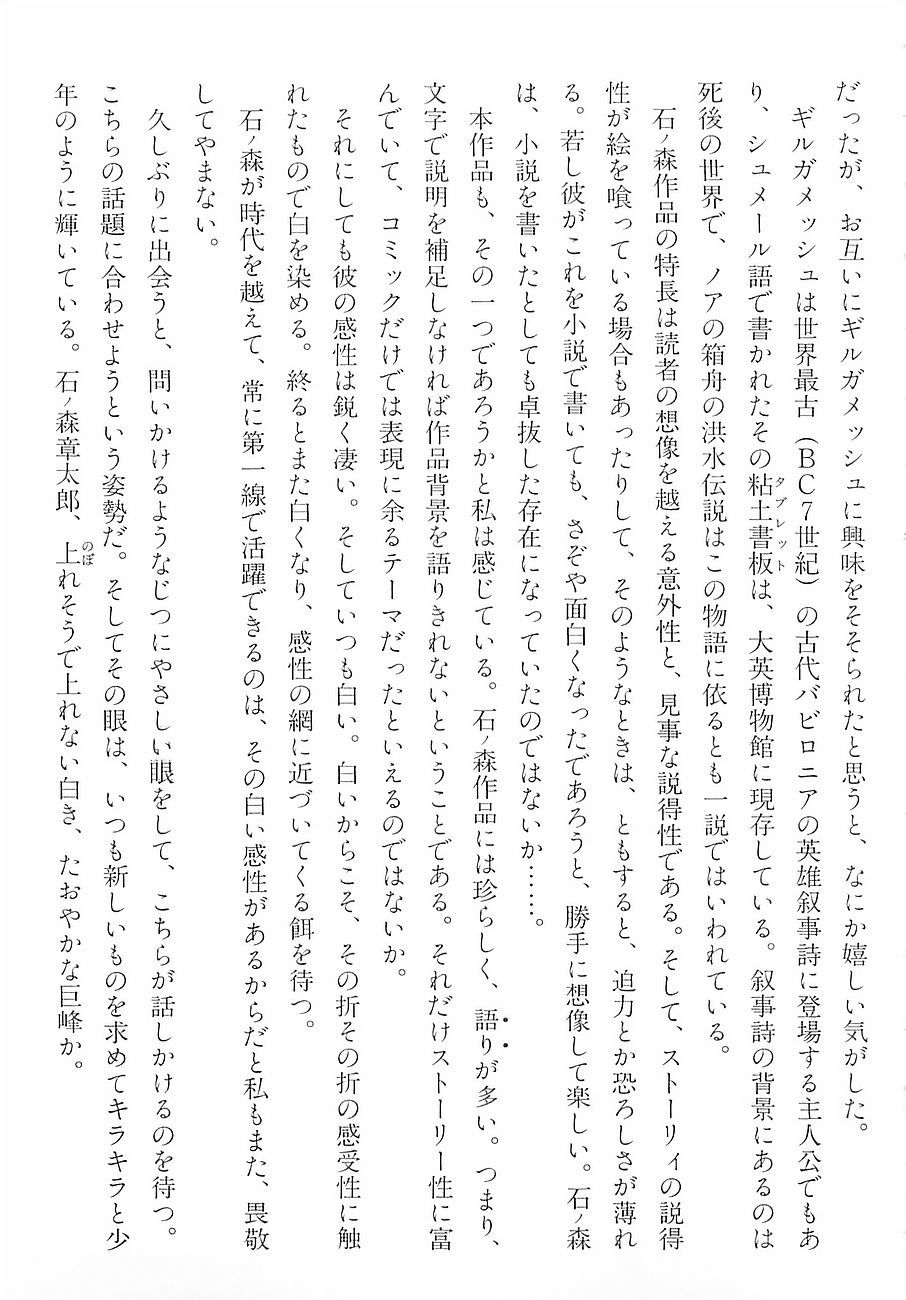 だったが、お互いにギルガメッシュに興味をそそられたと思うと、なにか嬉しい気がした。
ギルガメッシュは世界最古（BC7世紀）の古代バビロニアの英雄叙事詩に登場する主人公でもあ
り、シュメール語で書かれたその粘土書板タブレットは、大英博物館に現存している。叙事詩の背景にあるのは
死後の世界で、ノアの箱舟の洪水伝説はこの物語に依るとも一説ではいわれている。
石ノ森作品の特長は読者の想像を越える意外性と、見事な説得性である。そして、ストーリィの説得
性が絵を喰っている場合もあったりして、そのようなときは、ともすると、迫力とか恐ろしさが薄れ
る。若し彼がこれを小説で書いても、さぞや面白くなったであろうと、勝手に想像して楽しい。石ノ森
は、小説を書いたとしても卓抜した存在になっていたのではないか……。
本作品も、その一つであろうかと私は感じている。石ノ森作品には珍らしく、語りが多い。つまり、
文字で説明を補足しなければ作品背景を語りきれないということである。それだけストーリー性に富
んでいて、コミックだけでは表現に余るテーマだったといえるのではないか。
それにしても彼の感性は鋭く凄い。そしていつも白い。白いからこそ、その折その折の感受性に触
れたもので白を染める。終るとまた白くなり、感性の網に近づいてくる餌を待つ。
石ノ森が時代を越えて、常に第一線で活躍できるのは、その白い感性があるからだと私もまた、畏敬
してやまない。
久しぶりに出会うと、問いかけるようなじつにやさしい眼をして、こちらが話しかけるのを待つ。
こちらの話題に合わせようという姿勢だ。そしてその眼は、いつも新しいものを求めてキラキラと少
年のように輝いている。石ノ森章太郎、上のぼれそうで上れない白き、たおやかな巨峰か。